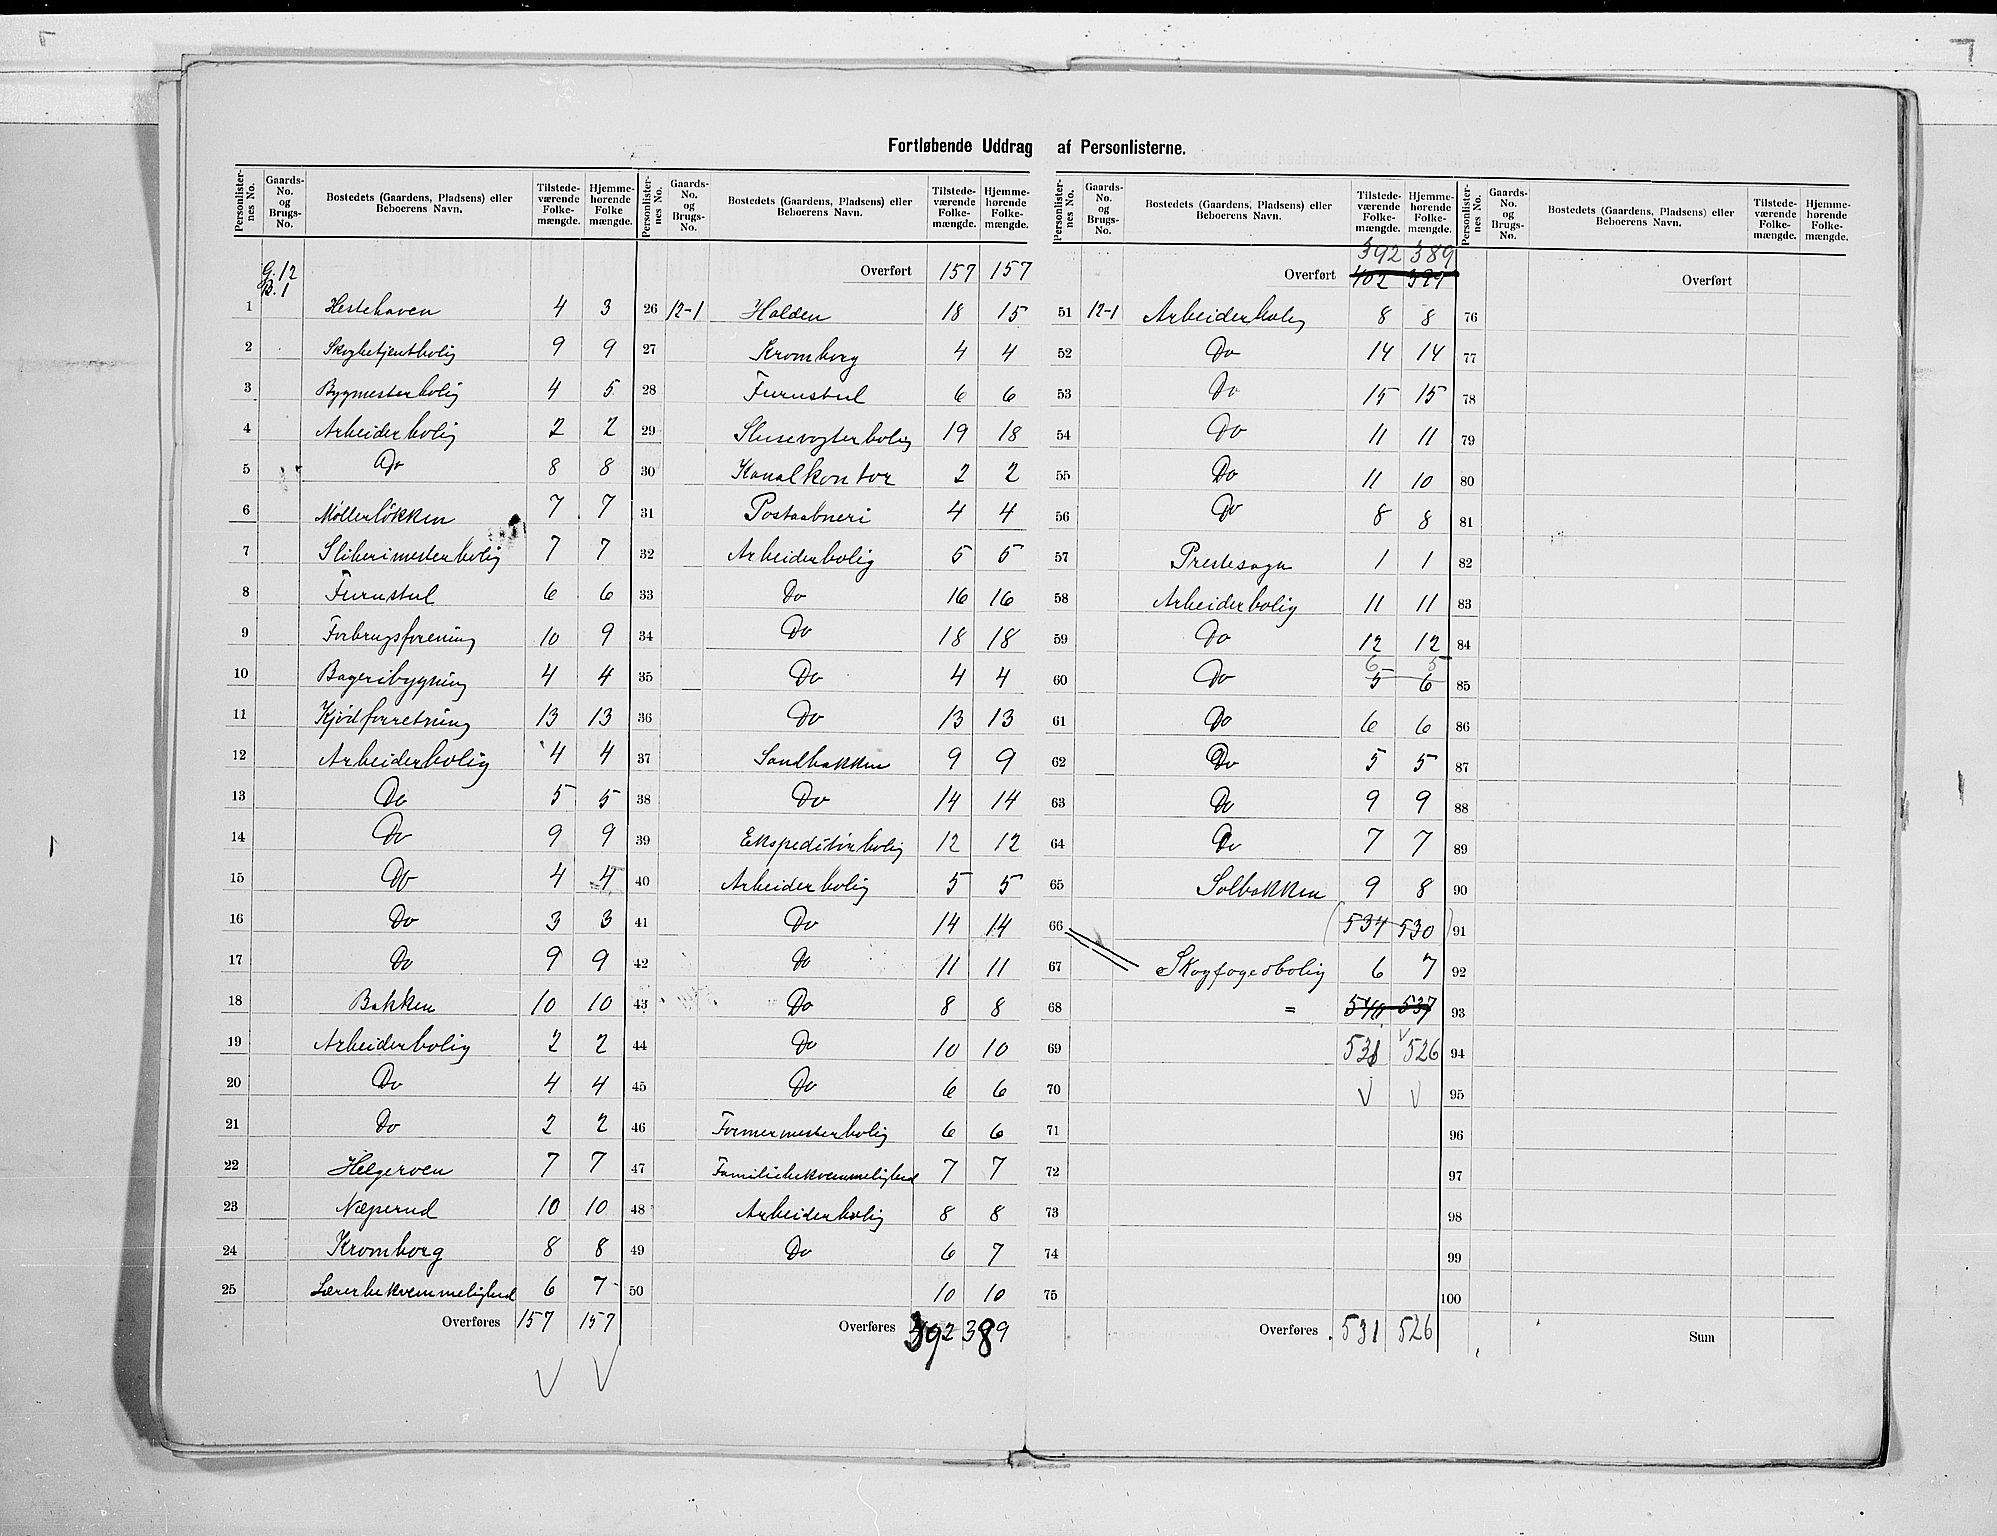 Fortløbende Uddrag af Personlisterne.
Personlisternes No. | Gaards-No. og Brugs-No. | Bostedets (Gaardens, Pladsens) eller Beboerens Navn. | Tilstedeværende Folkemængde. | Hjemmehørende Folkemængde.
G. 12
B. 1
1 Hestehaven 4 3
2 Skogbetjentbolig 9 9
3 Bygmesterbolig 4 5
4 Arbeiderbolig 2 2
5 Do 8 8
6 Møllerløkken 7 7
7 Sliberimesterbolig 7 7
8 Furustul 6 6
9 Forbrugsforening 10 9
10 Bageribygning 4 4
11 Kjødforretning 13 13
12 Arbeiderbolig 4 4
13 Do 5 5
14 Do 9 9
15 Do 4 4
16 Do 3 3
17 Do 9 9
18 Bakken 10 10
19 Arbeiderbolig 2 2
20 Do 4 4
21 Do 2 2
22 Helgeroen 7 7
23 Næperud 10 10
24 Kromborg 8 8
25 Lærerbekvemmelighed 6 7
Overføres 157 157
Personlisternes No. | Gaards-No. og Brugs-No. | Bostedets (Gaardens, Pladsens) eller Beboerens Navn. | Tilstedeværende Folkemængde. | Hjemmehørende Folkemængde.
Overført 157 157
26 12-1 Holden 18 15
27 Kromborg 4 4
28 Furustul 6 6
29 Slusevogterbolig 19 18
30 Kanalkontor 2 2
31 Postaabneri 4 4
32 Arbeiderbolig 5 5
33 Do 16 16
34 Do 18 18
35 Do 4 4
36 Do 13 13
37 Sandbakken 9 9
38 Do 14 14
39 Ekspeditørbolig 12 12
40 Arbeiderbolig 5 5
41 Do 14 14
42 Do 11 11
43 Do 8 8
44 Do 10 10
45 Do 6 6
46 Formermesterbolig 6 6
47 Familiebekvemmelighed 7 7
48 Arbeiderbolig 8 8
49 Do 6 7
50 10 10
Overføres 392 389
Personlisternes No. | Gaards-No. og Brugs-No. | Bostedets (Gaardens, Pladsens) eller Beboerens Navn. | Tilstedeværende Folkemængde. | Hjemmehørende Folkemængde.
392 389
Overført 402 399
51 12-1 Arbeiderbolig 8 8
52 Do 14 14
53 Do 15 15
54 Do 11 11
55 Do 11 10
56 Do 8 8
57 Prestesagn 1 1
58 Arbeiderbolig 11 11
59 Do 12 12
6 5
60 Do 5 6
61 Do 6 6
62 Do 5 5
63 Do 9 9
64 Do 7 7
65 Solbakken 9 8
66 (534 530)
67 Skogfogedbolig 6 7
68 = 540 537
69 531 526
70
71
72
73
74
75
Overføres 531 526
Personlisternes No. | Gaards-No. og Brugs-No. | Bostedets (Gaardens, Pladsens) eller Beboerens Navn. | Tilstedeværende Folkemængde. | Hjemmehørende Folkemængde.
Overført
76
77
78
79
80
81
82
83
84
85
86
87
88
89
90
91
92
93
94
95
96
97
98
99
100
Sum